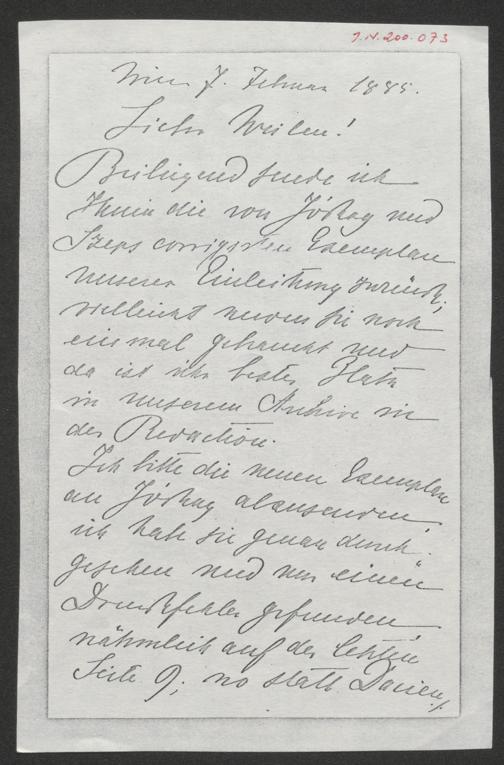 J.N. 200.073
Wien 7. Februar 1885.
Lieber Weilen!
Beiliegend sende ich
Ihnen die von Jókay und
Szeps corrigirten Exemplare
unserer Einleitung zurück;
vielleicht werden sie noch
einmal gebraucht und
da ist ihr bester Platz
in unserem Archive in
der Redaction.
Ich bitte die neuen Exemplare
an Jókay abzusenden
ich habe sie genau durch-
gesehen und nur einen
Druckfehler gefunden
nähmlich auf der letzten
Seite 9; wo statt Dacien